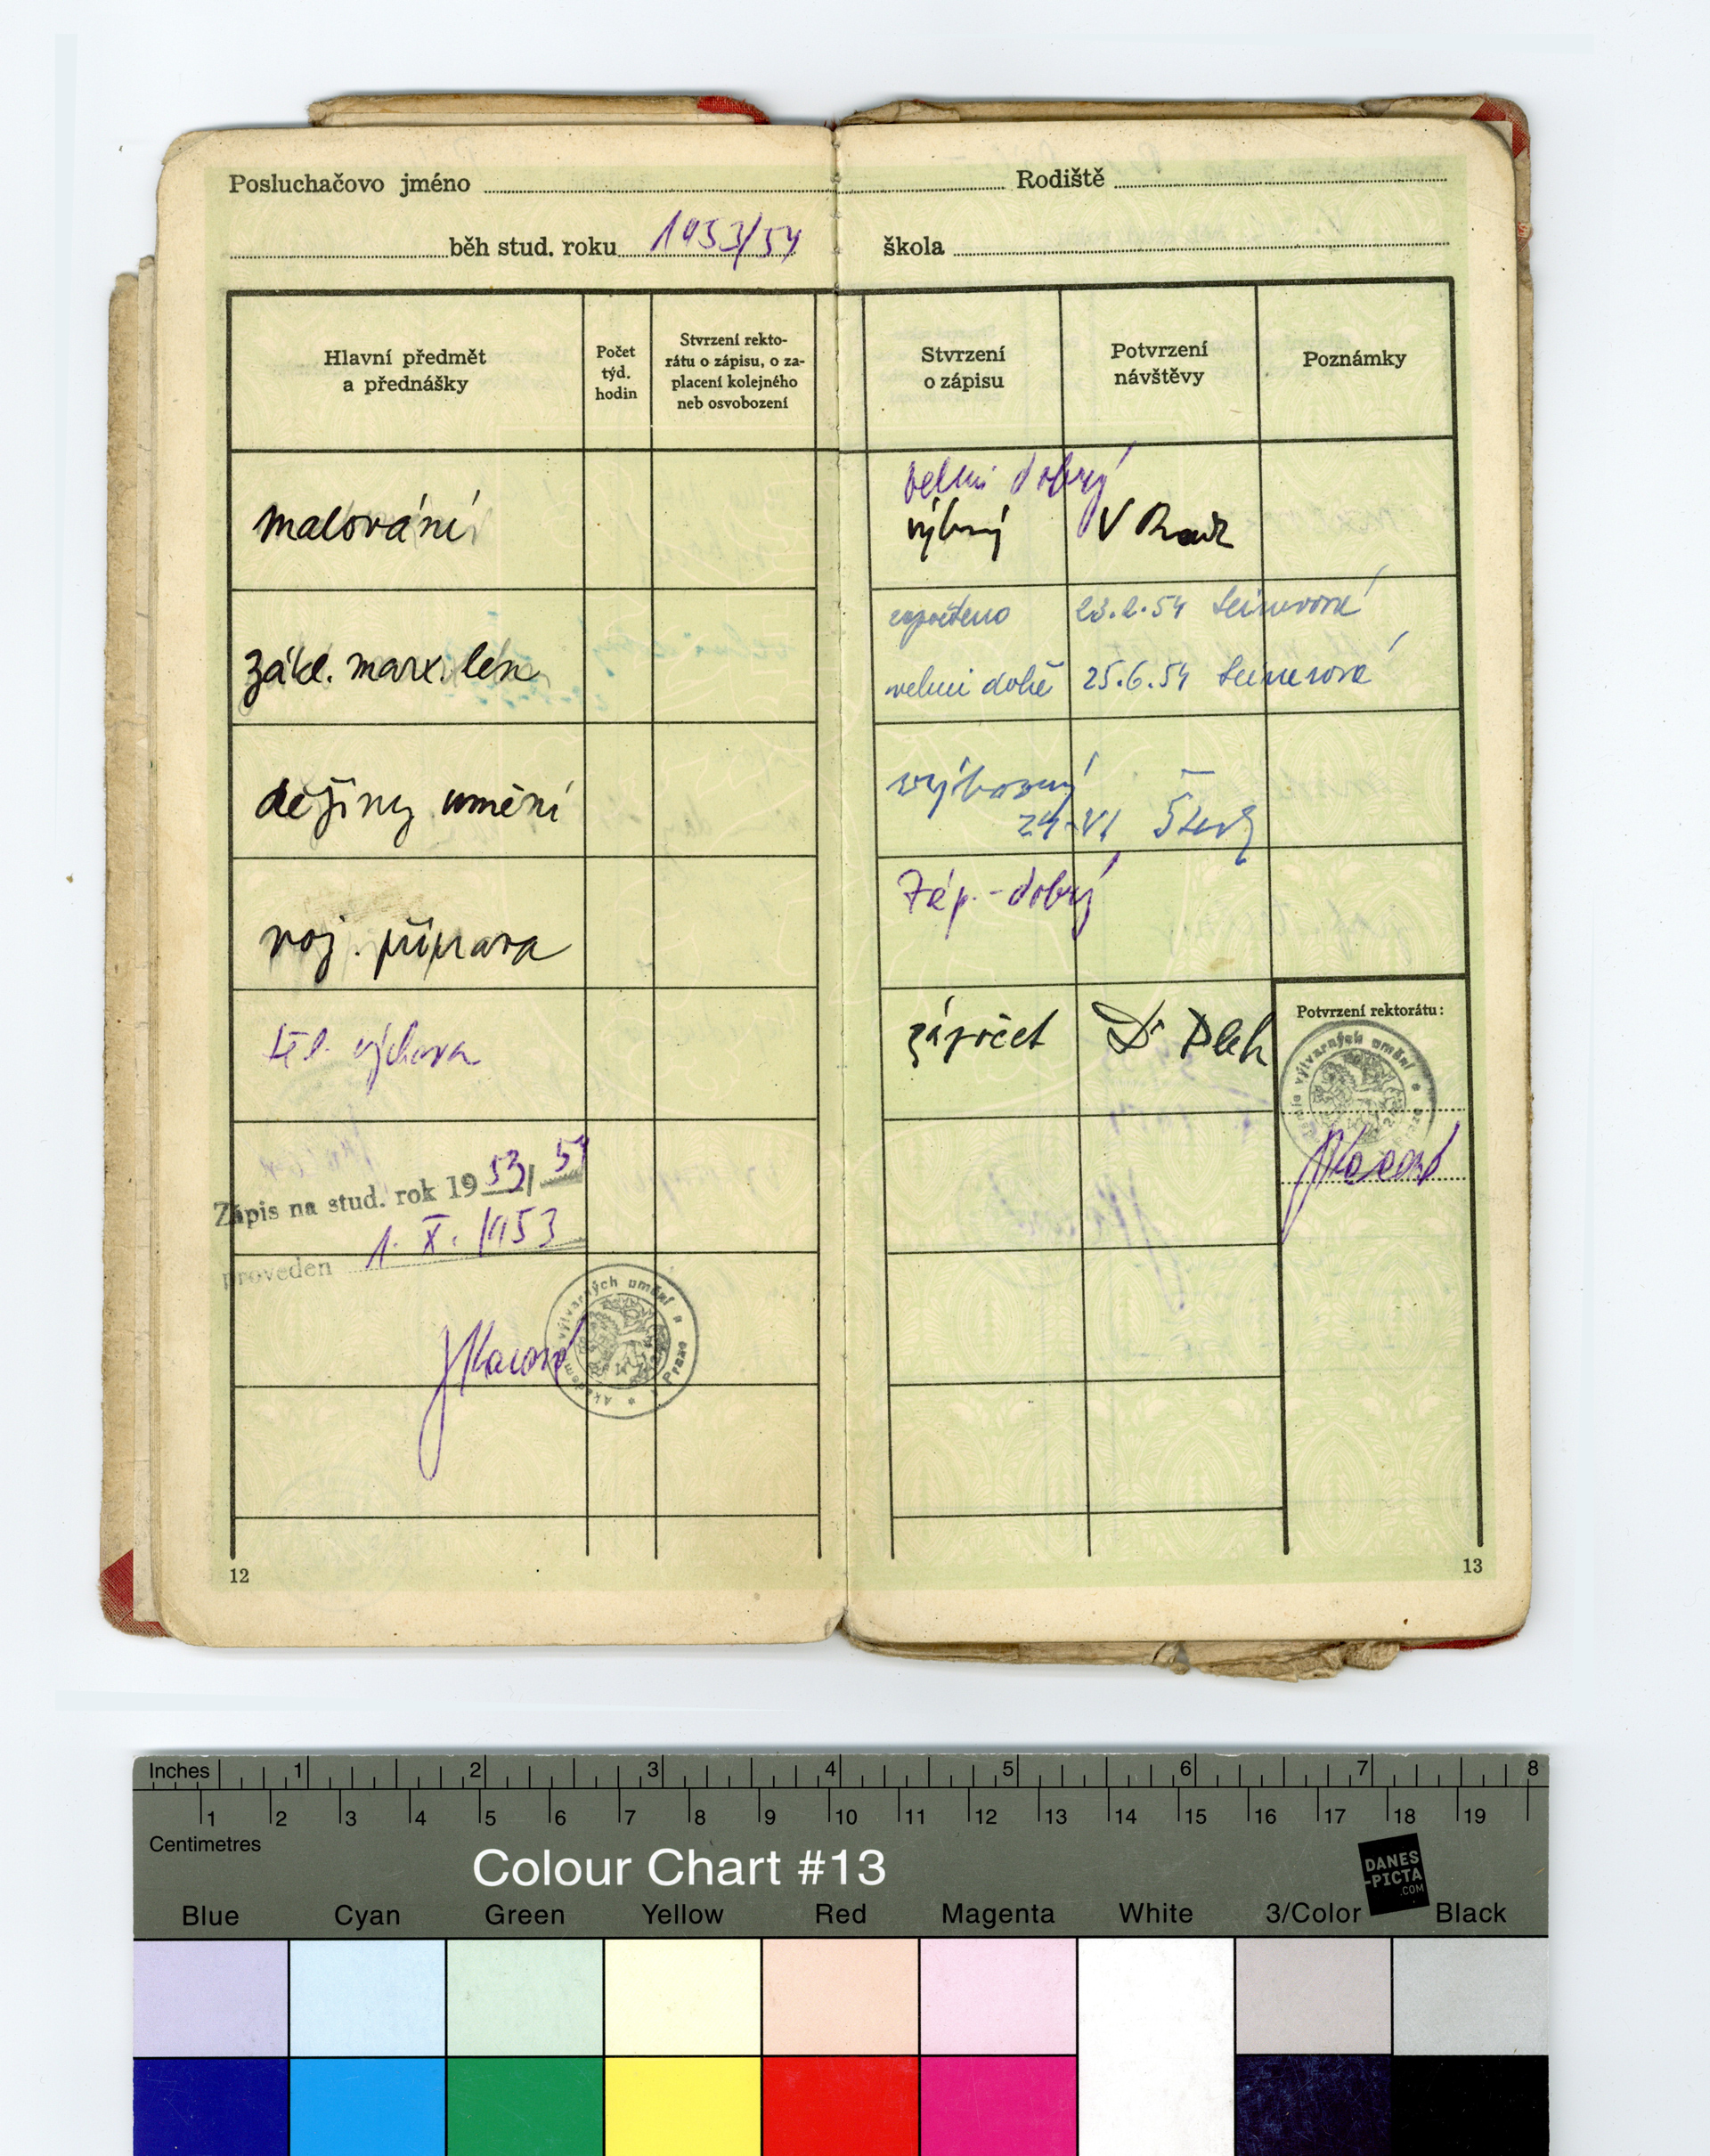 Posluchačovo jméno Rodiště
běh stud. roku 1953/54 škola
Hlavní předmět
a přednášky
Počet
týd.
hodin
Stvrzení rekto-
rátu o zápisu, o za-
placení kolejného
neb osvobození
Stvrzení
o zápisu
Potvrzení
návštěvy
Poznámky
malování
velmi dobrý
výborný
zákl. marx. len.
započteno 23.2.54
velmi dobře 25.6.54
dějiny umění
výborný
24.VI
voj. příprava
Záp. - dobrý
těl. výchova
zápočet Dr
Potvrzení rektorátu:
Akademie výtvarných umění Praha
Zápis na stud. rok 1953/54
proveden 1. X. 1953
Akademie výtvarných umění Praha
12
13
Inches 1 2 3 4 5 6 7 8
1 2 3 4 5 6 7 8 9 10 11 12 13 14 15 16 17 18 19
Centimetres
Colour Chart #13
DANES
-PICTA
.COM
Blue Cyan Green Yellow Red Magenta White 3/Color Black